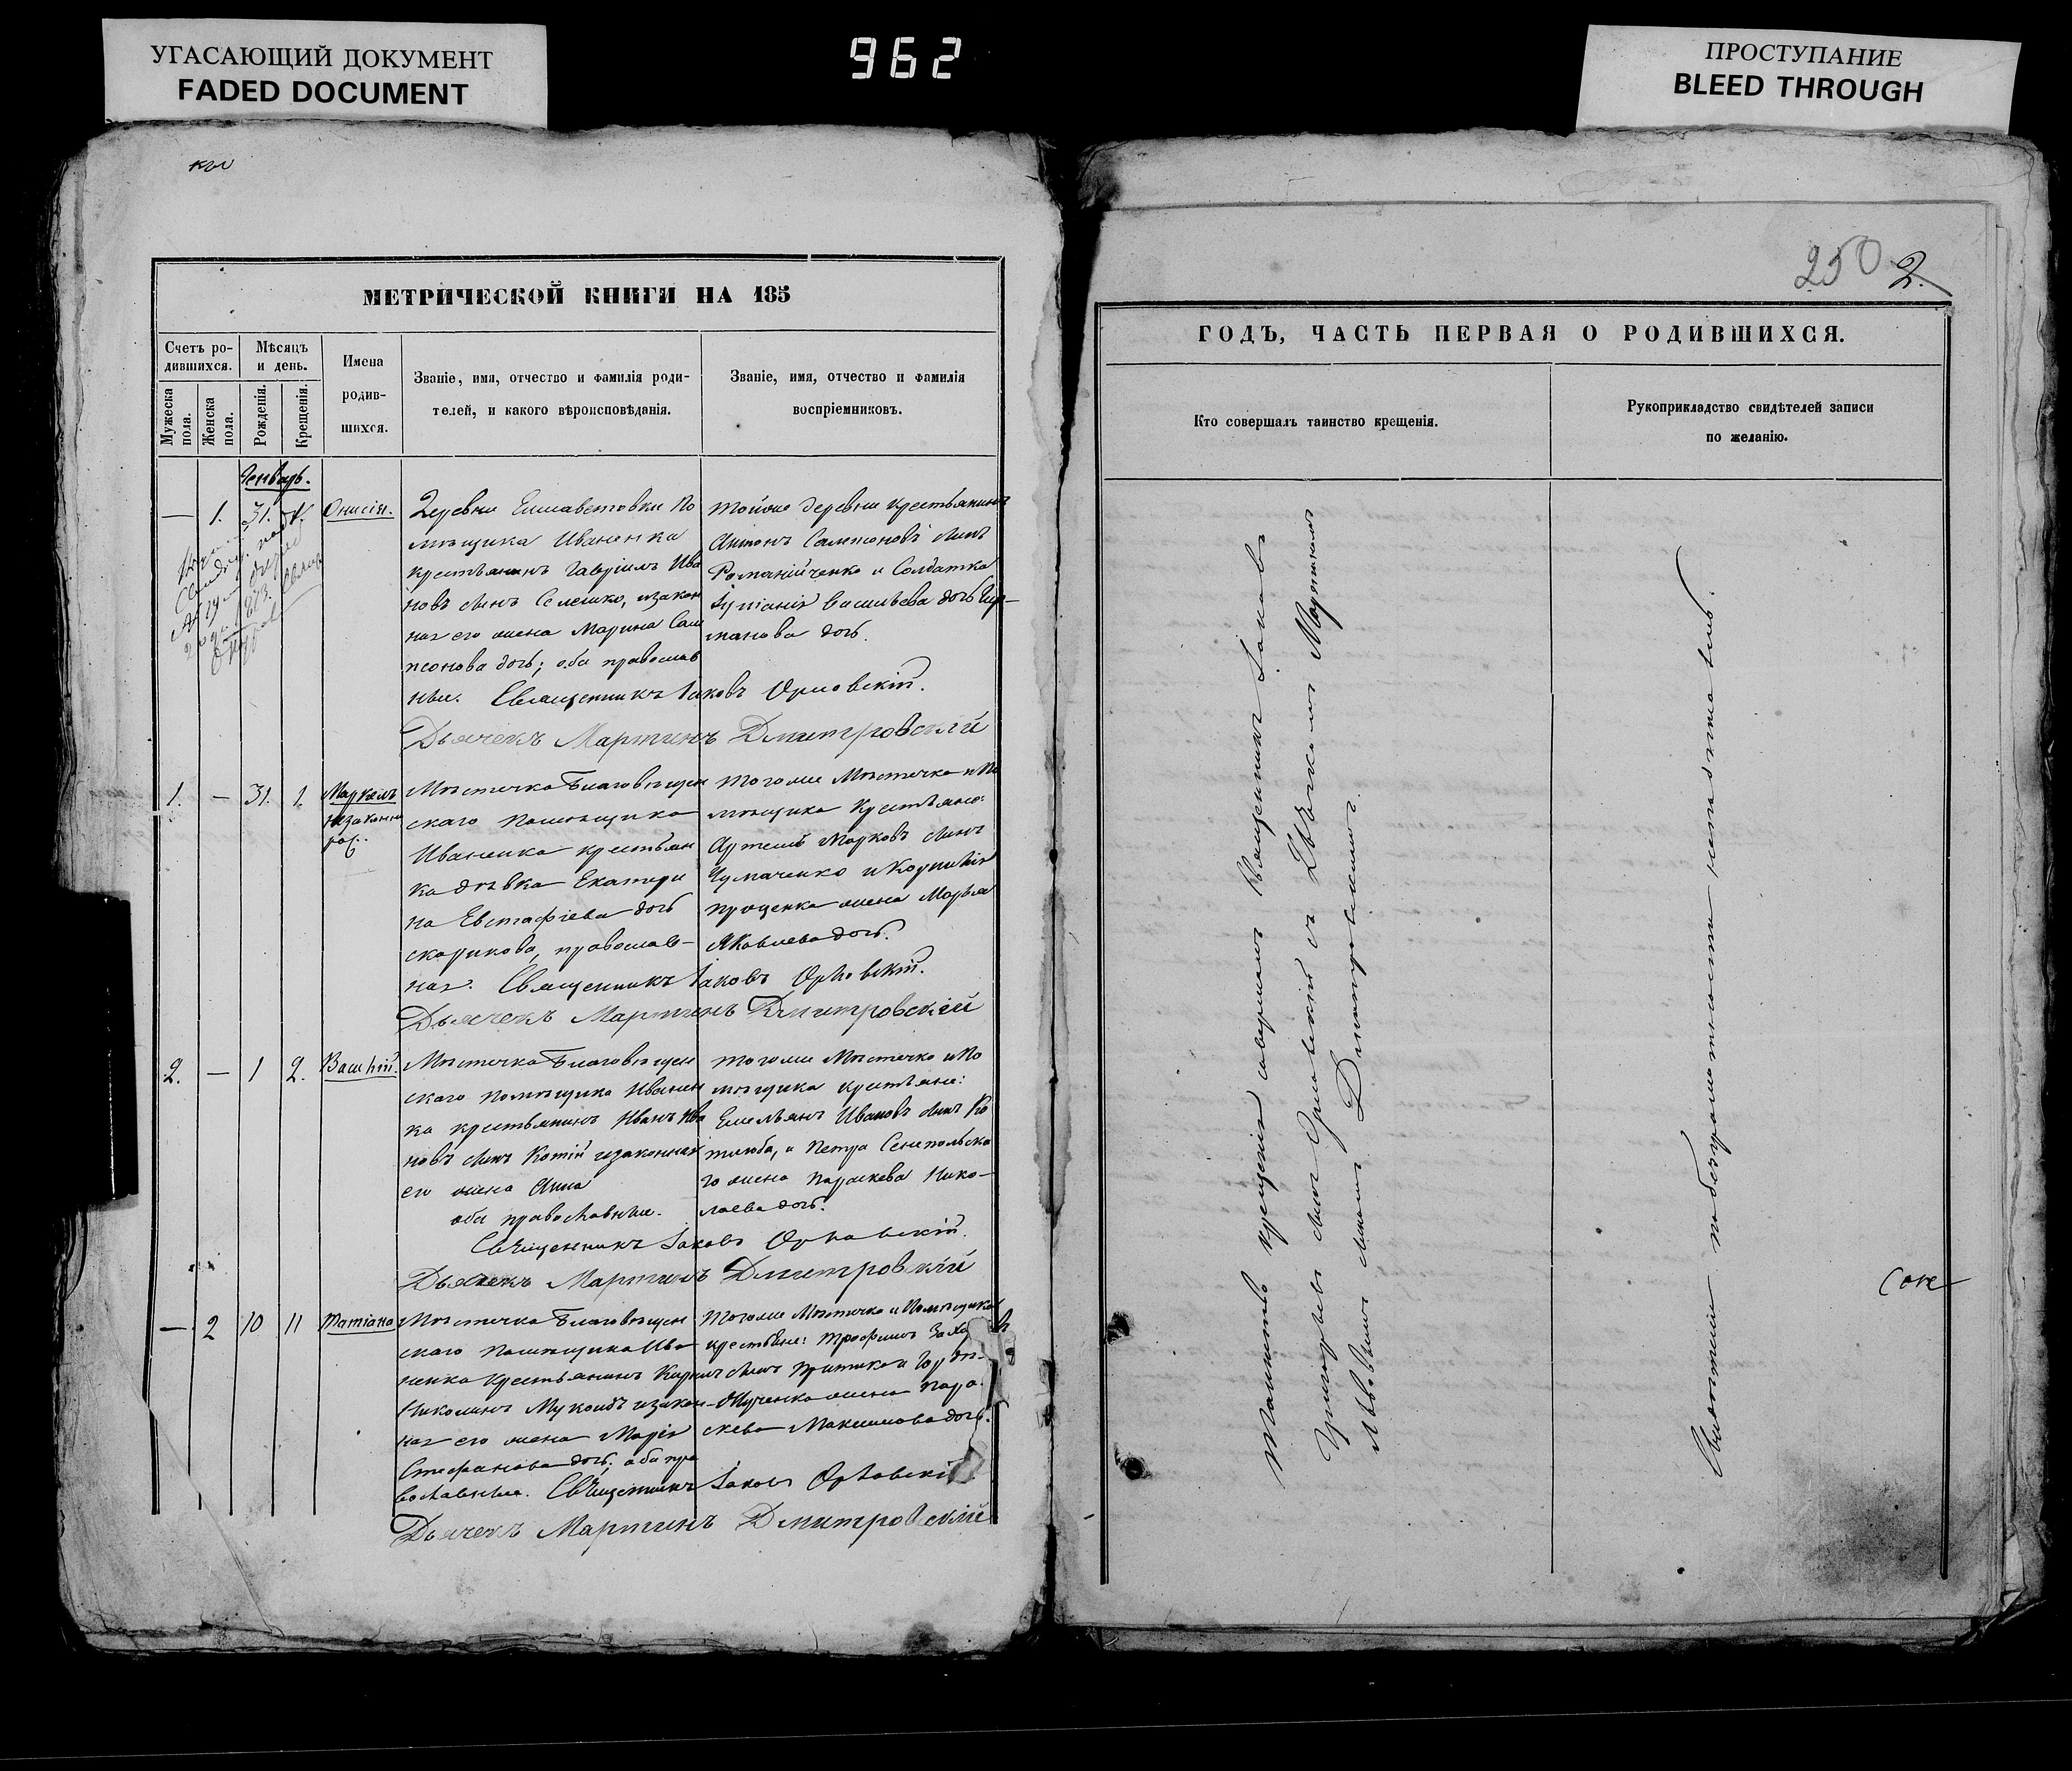 УГАСАЮЩИЙ ДОКУМЕНТ
FADED DOCUMENT
962
ПРОСТУПАНИЕ
BLEED THROUGH
МЕТРИЧЕСКОЙ КНИГИ НА 185
Счетъ ро-
дившихся.
Мѣсяцъ
и день.
Мужеска
пола.
Женска
пола.
Рожденія.
Крещенія.
Имена
родив-
шихся.
Званіе, имя, отчество и фамилія роди-
телей, и какого вѣроисповѣданія.
Званіе, имя, отчество и фамилія
воспріемниковъ.
Генварь.
— 1. 31. Онисія.
Деревни Елисаветовки по
мѣщика Иваненка
крестьянинъ Гавріилъ Ива
новъ сынъ Семешко, изакон
ная его жена Марина Сам
псонова дочь; оба православ
ные. Священникъ Іаковъ Орловскій.
Дьячекъ Мартинъ Дмитровскій
тойже деревни крестьянинъ
Антонъ Сампсоновъ сынъ
Романійченко и Солдатка
Іуліанія Васильева дочь
манова дочь.
1. — 31. 1. Маркелъ
незаконно
рож.
Мѣстечка Благовѣщен
скаго помѣщика
Иваненка крестьян
ка дѣвка Екатери
на Евстафіева дочь
скарикова, православ-
ная. Священникъ Іаковъ Орловскій.
Дьячекъ Мартинъ Дмитровскій
тогоже Мѣстечка и по
мѣщика крестьяне:
Артемій Марковъ сынъ
Чумаченко и Корнилія
проценка жена Марья
Яковлева дочь.
2. — 1 2. Василій.
Мѣстечка Благовѣщен
скаго помѣщика Иванен
ка крестьянинъ Иванъ Ива
новъ сынъ Котій изаконная
его жена Анна
оба православные.
Священникъ Іаковъ Орловскій.
Дьячекъ Мартинъ Дмитровскій
тогоже Мѣстечка и по
мѣщика крестьяне:
Емельянъ Ивановъ сынъ Ко
тлюба, и Петра Сенипольска
го жена Параскева Нико-
лаева дочь.
— 2 10 11 Татіана
Мѣстечка Благовѣщен
скаго помѣщика Ива
ненка крестьянинъ Кирилъ
Николинъ изакон-
ная его жена Марія
Стефанова дочь; оба пра
вославные. Священникъ Іаковъ Орловскій.
Дьячекъ Мартинъ Дмитровскій
тогоже Мѣстечка и помѣщика
крестьяне: Трофимъ
сынъ Притика и
жена Пара
скева Максимова дочь.
250 2.
ГОДЪ, ЧАСТЬ ПЕРВАЯ О РОДИВШИХСЯ.
Кто совершалъ таинство крещенія.
Рукоприкладство свидѣтелей записи
по желанію.
Таинство крещенія совершалъ Священникъ Іаковъ
Григорьевъ сынъ Орловскій съ Дьячкомъ Мартиномъ
Львовымъ сыномъ Дмитровскимъ.
Свидѣтели по безграмотности неподписались.